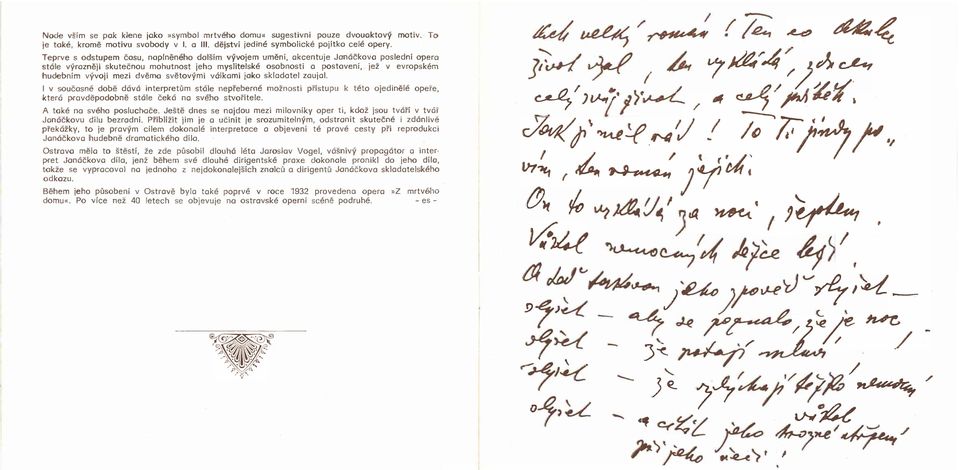 Nade vším se pak klene jako »symbol mrtvého domu« sugestivní pouze dvouaktový motiv. To
je také, kromě motivu svobody v I. a III. dějství jediné symbolické pojítko celé opery.
Teprve s odstupem času, naplněného dalším vývojem umění, akcentuje Janáčkova poslední opera
stále výrazněji skutečnou mohutnost jeho myslitelské osobnosti a postavení, jež v evropském
hudebním vývoji mezi dvěma světovými válkami jako skladatel zaujal.
I v současné době dává interpretům stále nepřeberné možnosti přístupu k této ojedinělé opeře,
která pravděpodobně stále čeká na svého stvořitele.
A také na svého posluchače. Ještě dnes se najdou mezi milovníky oper ti, kdož jsou tváří v tvář
Janáčkovu dílu bezradní. Přiblížit jim je a učinit je srozumitelným, odstranit skutečné i zdánlivé
překážky, to je pravým cílem dokonalé interpretace a objevení té pravé cesty při reprodukci
Janáčkova hudebně dramatického díla.
Ostrava měla to štěstí, že zde působil dlouhá léta Jaroslav Vogel, vášnivý propagátor a inter-
pret Janáčkova díla, jenž během své dlouhé dirigentské praxe dokonale pronikl do jeho díla,
takže se vypracoval na jednoho z nejdokonalejších znalců a dirigentů Janáčkova skladatelského
odkazu.
Během jeho působení v Ostravě byla také poprvé v roce 1932 provedena opera »Z mrtvého
domu«. Po více než 40 letech se objevuje na ostravské operní scéně podruhé. - es -
Ach velký román! Ten co
život vzal, ten vykládá, zde cen
celý svůj život, a celý příběh.
Jak ji měl rád! To Ti jindy po„
vím, ten román jejich.
On to vykládá za noci, šeptem.
Vůkol nemocných těžce leží
A teď takovou jeho zpověď slyšel –
slyšel – aby se poznalo, že je noc,
slyšel – že potají mluví
slyšel – že vzdychají těžko nemocní
slyšel – a cítil vůkol
jeho hrozné utrpení
při jeho řeči!